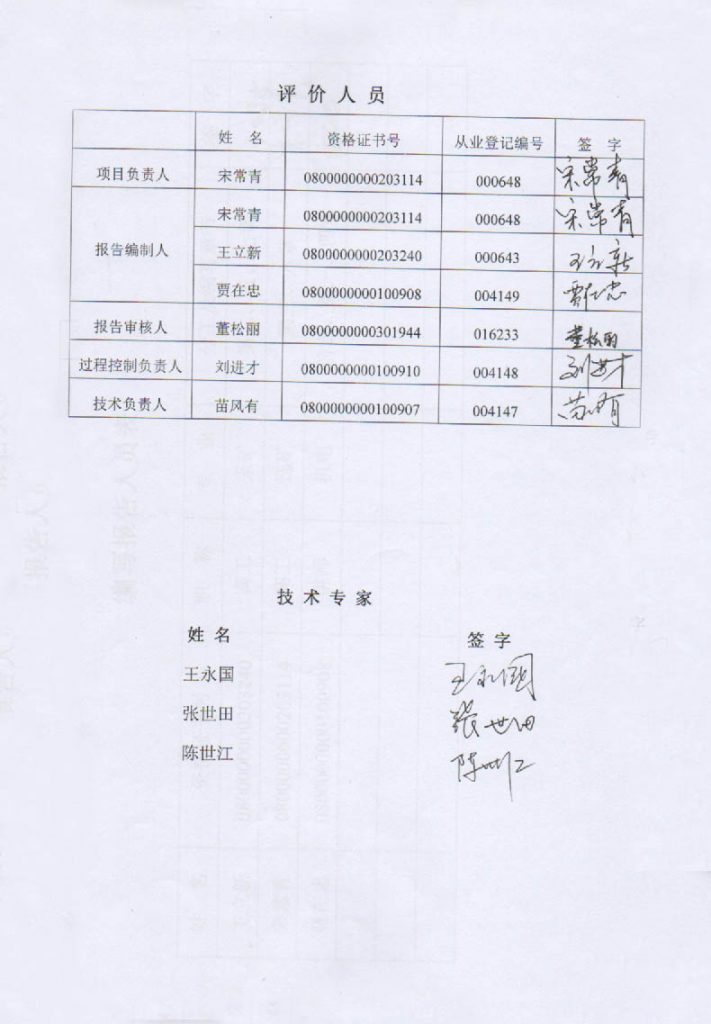 评价人员
姓 名 资格证书号 从业登记编号 签 字
项目负责人 宋常青 0800000000203114 000648 宋常青
报告编制人 宋常青 0800000000203114 000648 宋常青
王立新 0800000000203240 000643 王立新
贾在忠 0800000000100908 004149 贾在忠
报告审核人 董松丽 0800000000301944 016233 董松丽
过程控制负责人 刘进才 0800000000100910 004148 刘进才
技术负责人 苗风有 0800000000100907 004147 苗风有
技术专家
姓 名 签 字
王永国 王永国
张世田 张世田
陈世江 陈世江